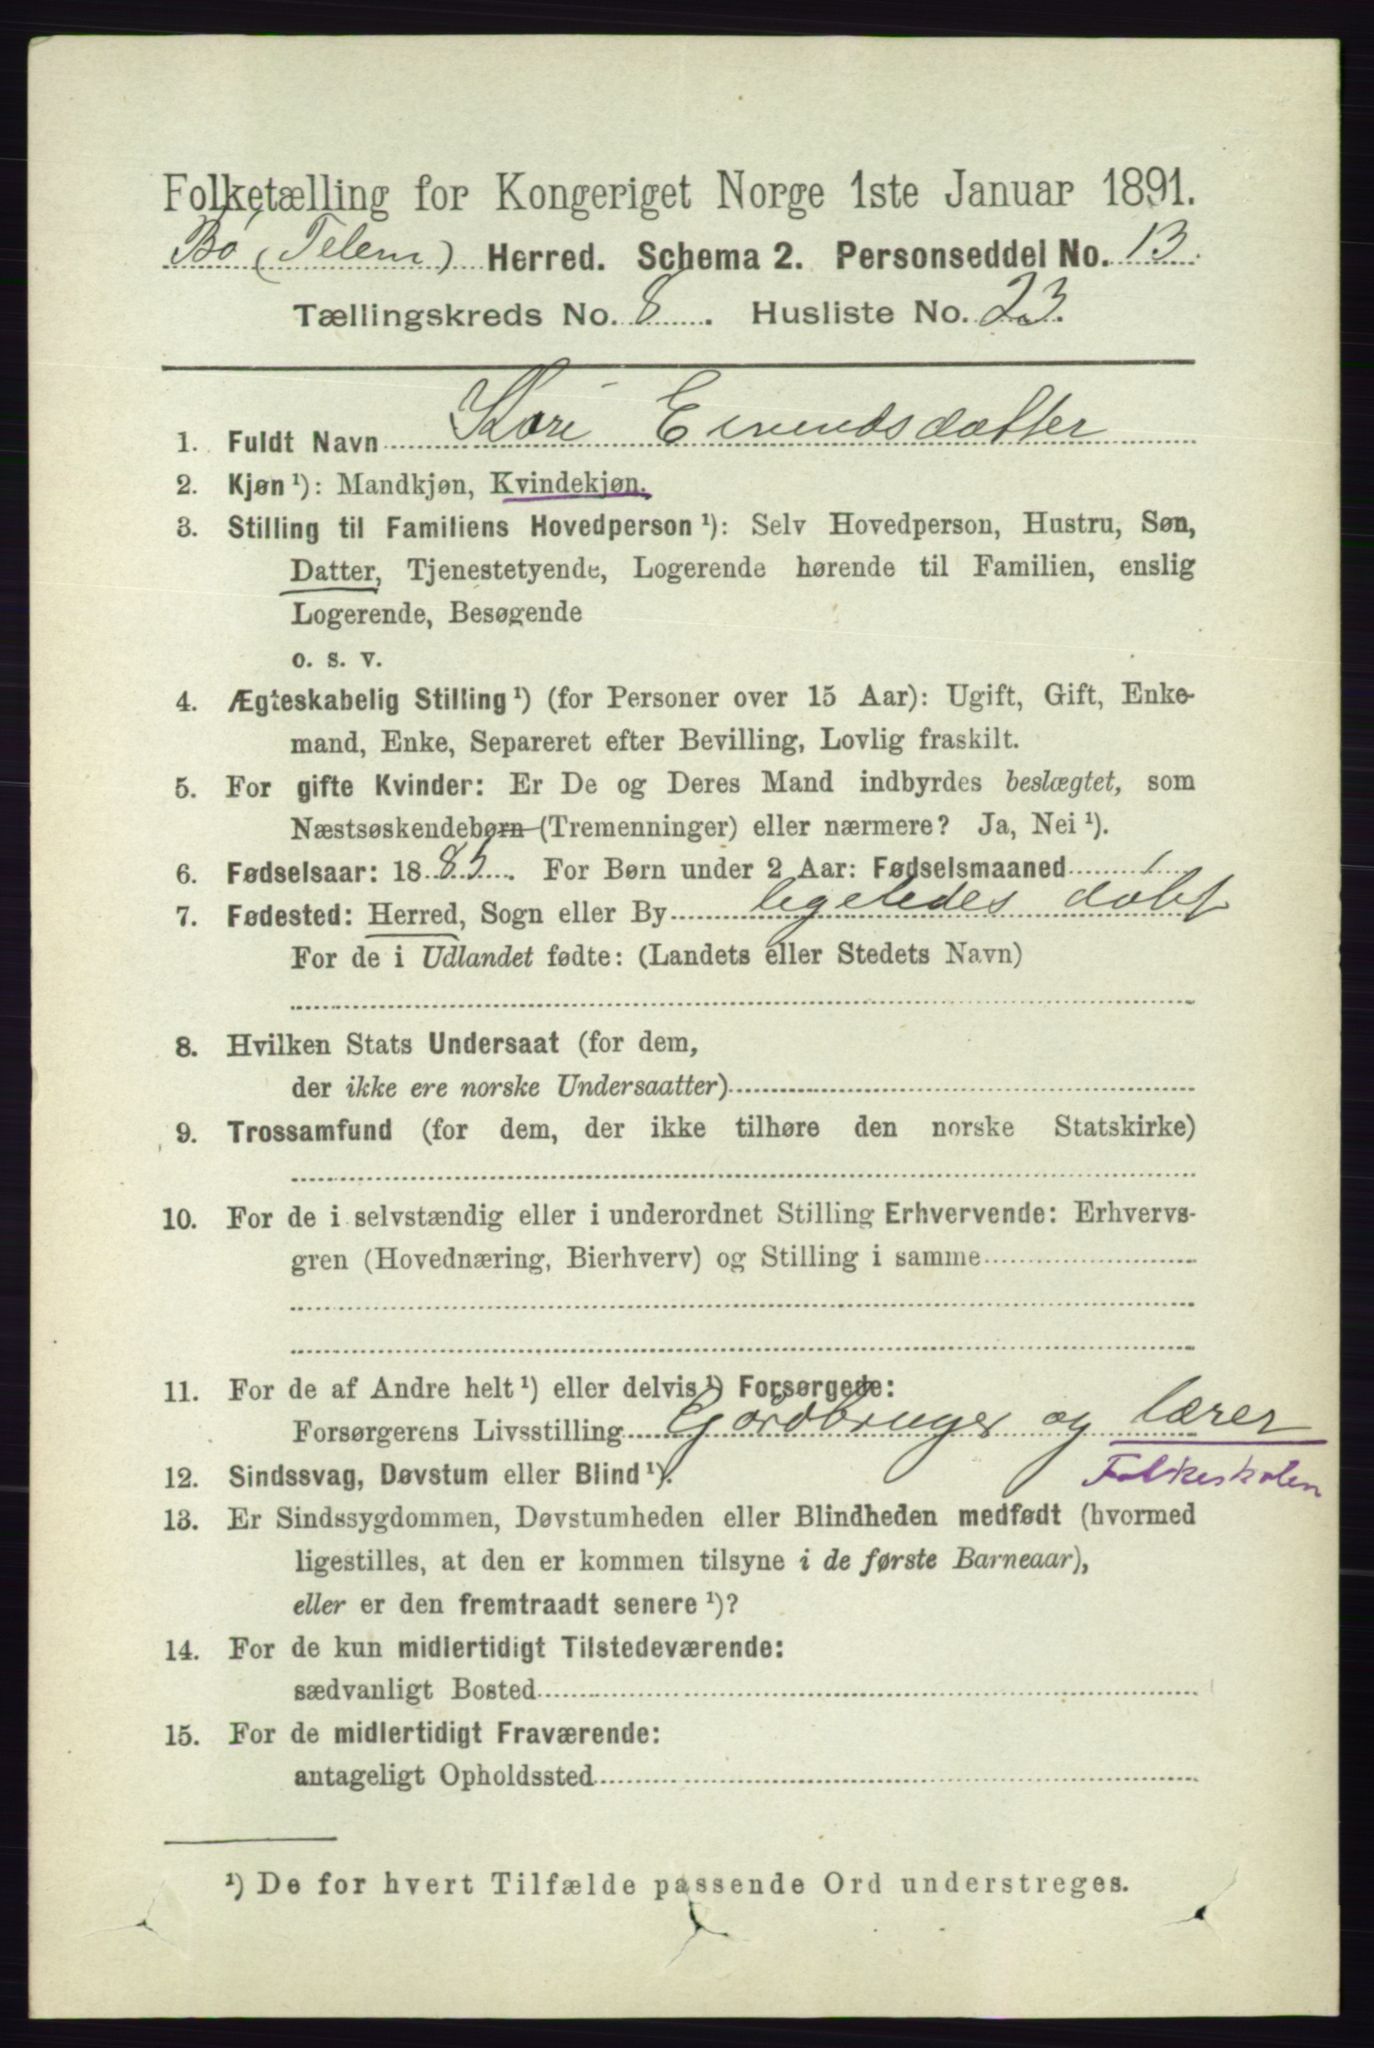 Folketælling for Kongeriget Norge 1ste Januar 1891.
Bø (Telem) Herred. Schema 2. Personseddel No. 13.
Tællingskreds No. 8. Husliste No. 23.
1. Fuldt Navn Kari Eivendsdatter
2. Kjøn ¹): Mandkjøn, Kvindekjøn.
3. Stilling til Familiens Hovedperson ¹): Selv Hovedperson, Hustru, Søn,
Datter, Tjenestetyende, Logerende hørende til Familien, enslig
Logerende, Besøgende
o. s. v.
4. Ægteskabelig Stilling ¹) (for Personer over 15 Aar): Ugift, Gift, Enke-
mand, Enke, Separeret efter Bevilling, Lovlig fraskilt.
5. For gifte Kvinder: Er De og Deres Mand indbyrdes beslægtet, som
Næstsøskendebørn (Tremenninger) eller nærmere? Ja, Nei ¹).
6. Fødselsaar: 1885. For Børn under 2 Aar: Fødselsmaaned
7. Fødested: Herred, Sogn eller By ligeledes
For de i Udlandet fødte: (Landets eller Stedets Navn)
8. Hvilken Stats Undersaat (for dem,
der ikke ere norske Undersaatter)
9. Trossamfund (for dem, der ikke tilhøre den norske Statskirke)
10. For de i selvstændig eller i underordnet Stilling Erhvervende: Erhvervs-
gren (Hovednæring, Bierhverv) og Stilling i samme
11. For de af Andre helt ¹) eller delvis ¹) Forsørgede:
Forsørgerens Livsstilling Gårdbruger og lærer
12. Sindssvag, Døvstum eller Blind ¹). Folkeskolen
13. Er Sindssygdommen, Døvstumheden eller Blindheden medfødt (hvormed
ligestilles, at den er kommen tilsyne i de første Barneaar),
eller er den fremtraadt senere ¹)?
14. For de kun midlertidigt Tilstedeværende:
sædvanligt Bosted
15. For de midlertidigt Fraværende:
antageligt Opholdssted
¹) De for hvert Tilfælde passende Ord understreges.